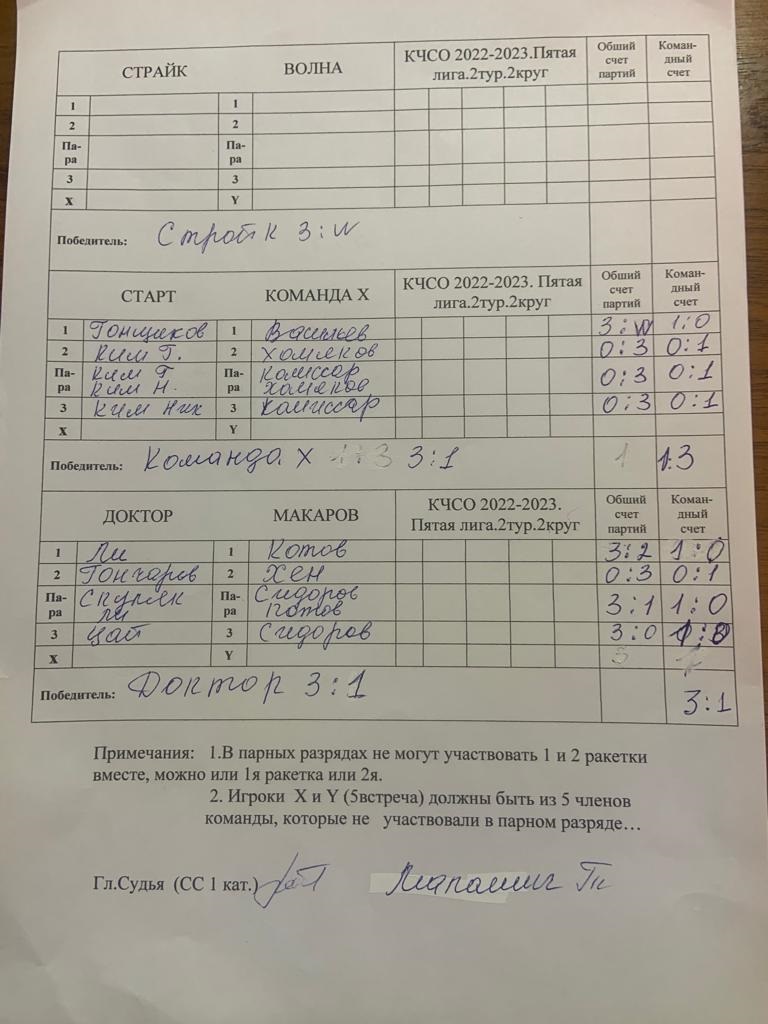 СТРАЙК ВОЛНА КЧСО 2022-2023.Пятая лига.2тур.2круг Общий счет партий Коман-дный счет
1 1
2 2
Па-ра Па-ра
3 3
X Y
Победитель: Страйк 3:W
СТАРТ КОМАНДА Х КЧСО 2022-2023. Пятая лига.2тур.2круг Общий счет партий Коман-дный счет
1 Гонщаков 1 Васильев 3:W 1:0
2 Ким Г. 2 Хомяков 0:3 0:1
Па-ра Ким Г Ким Н. Па-ра Комиссар Хомяков 0:3 0:1
3 Ким Ник 3 Комиссар 0:3 0:1
X Y
Победитель: Команда Х 3:1 1:3
ДОКТОР МАКАРОВ КЧСО 2022-2023. Пятая лига.2тур.2круг Общий счет партий Коман-дный счет
1 Ли 1 Котов 3:2 1:0
2 Гончаров 2 Хен 0:3 0:1
Па-ра Ли Па-ра Сидоров Котов 3:1 1:0
3 Цай 3 Сидоров 3:0 1:0
X Y
Победитель: Доктор 3:1 3:1
Примечания: 1.В парных разрядах не могут участвовать 1 и 2 ракетки
вместе, можно или 1я ракетка или 2я.
2. Игроки X и Y (5встреча) должны быть из 5 членов
команды, которые не участвовали в парном разряде…
Гл.Судья (СС 1 кат.)